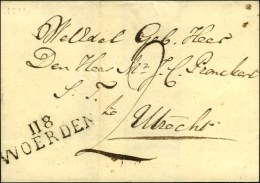 Weledel Geb. Heer
Den Heer Mr. J. C.
te
Utrecht
118
WOERDEN